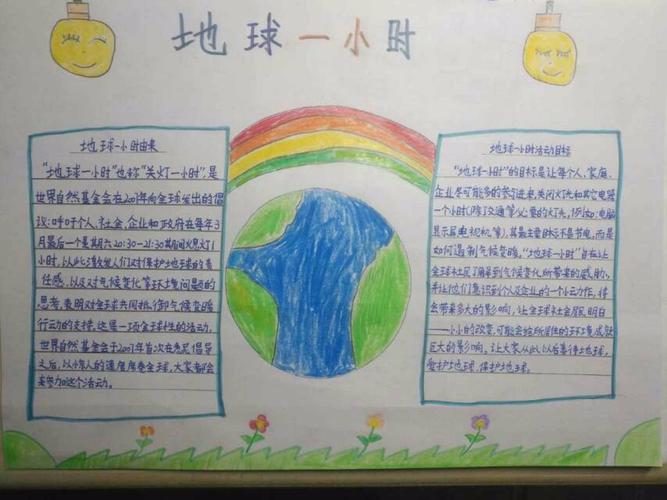 地球一小时
地球一小时由来
"地球一小时"也称"关灯一小时",是
世界自然基金会在2007年向全球发出的倡
议:呼吁个人、社会、企业和政府在每年3
月最后一个星期六20:30-21:30期间熄灯1
小时,以此激发人们对保护地球的责
任感,以及对气候变化等环境问题的
思考,表明对全球共同抵御气候变暖
行动的支持。这是一项全球性的活动,
世界自然基金会于2007年首次在悉尼倡导
之后,以惊人的速度席卷全球,大家都会
来参加这个活动。
地球一小时活动目标
"地球一小时"的目标是让每个人、家庭、
企业尽可能多的参与进来,关闭灯光和其它电器
一个小时(除交通等必需的灯光,例如:电脑
显示屏电视机等),其最主要目标还不是节电,而是
如何遏制气候变暖,"地球一小时"旨在让
全球社区了解到气候变化所带来的威胁,
并让他们意识到个人及企业的一个小动作,将
会带来多大的影响,让全球社会居民明白
一小小的改变,可能会给所居住的环境成就
巨大的影响。让大家从此以后善待地球,
爱护地球,保护地球。